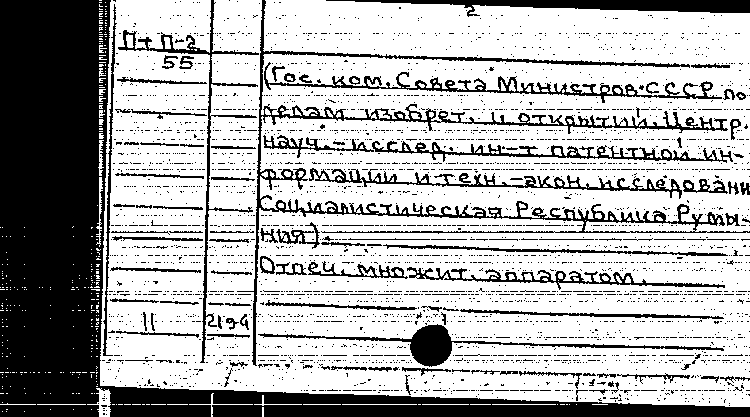 2
П+ П-2
55
(Гос. ком. Совета Министров СССР по
делам изобрет. и открытий. Центр.
науч.-исслед. ин-т патентной ин-
формации и техн.-экон. исследовани
Социалистическая Республика Румы-
ния).
Отпеч. множит. аппаратом.
11 2194